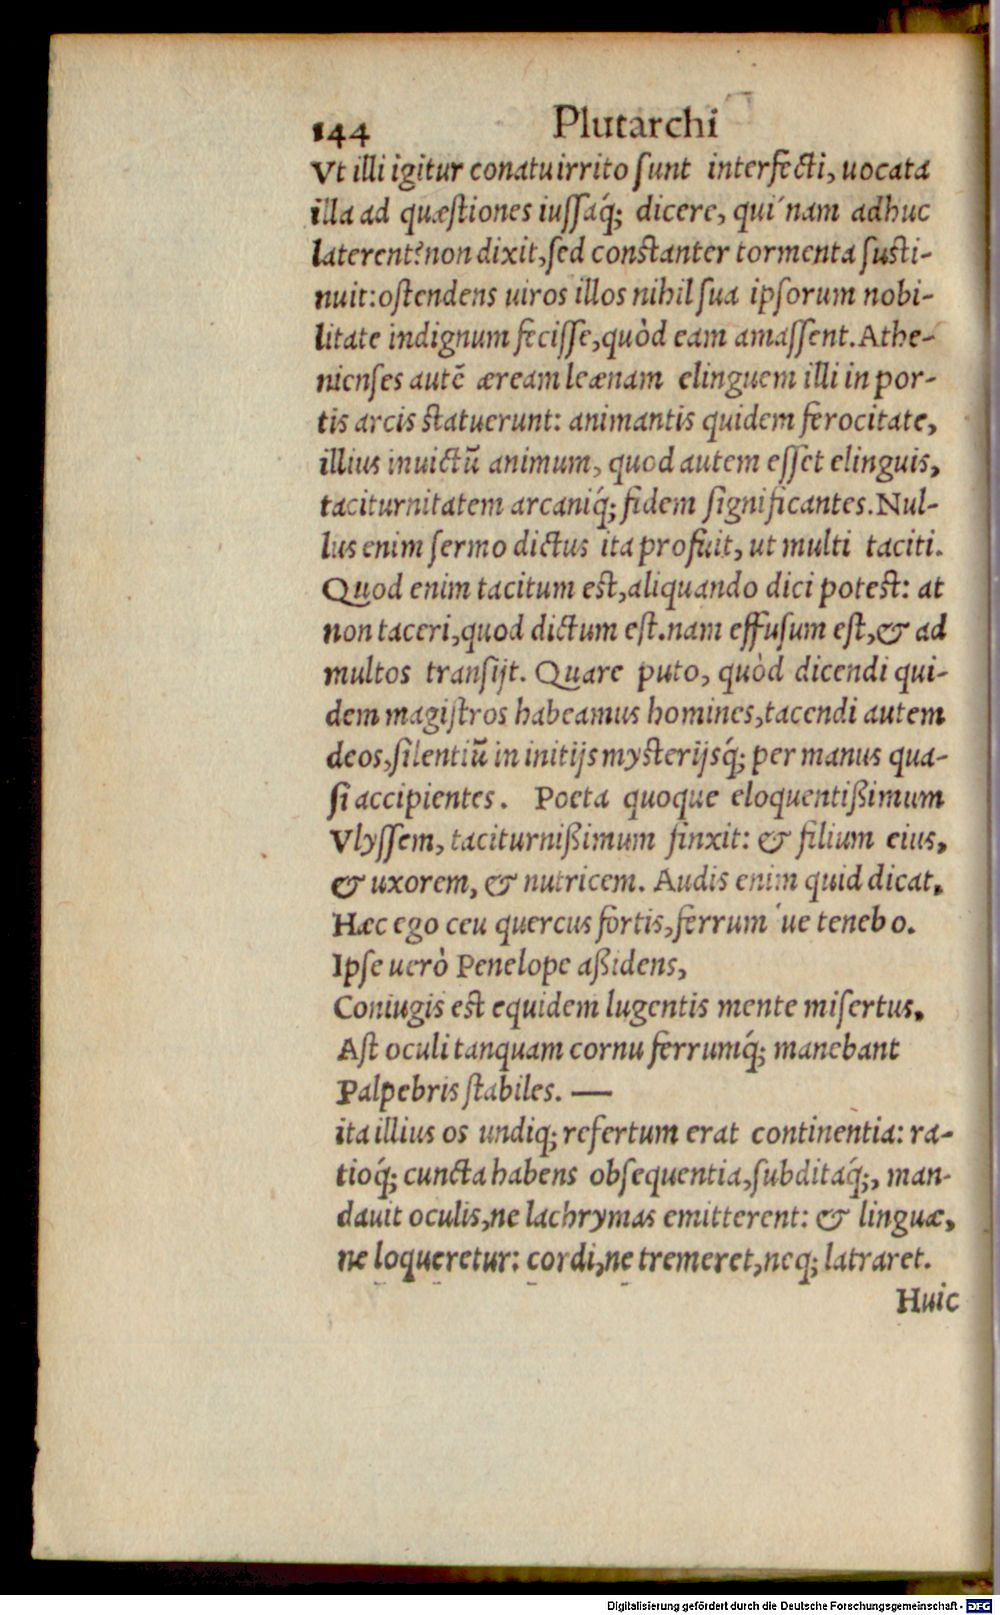 144 Plutarchi
Vt illi igitur conatu irrito sunt interfecti, uocata
illa ad quæstiones iussaq́; dicere, qui'nam adhuc
laterent? non dixit, sed constanter tormenta susti-
nuit: ostendens uiros illos nihil sua ipsorum nobi-
litate indignum fecisse, quòd eam amassent. Athe-
nienses autē æream leænam elinguem illi in por-
tis arcis statuerunt: animantis quidem ferocitate,
illius inuictū animum, quod autem esset elinguis,
taciturnitatem arcaniq́; fidem significantes. Nul-
lus enim sermo dictus ita profuit, ut multi taciti.
Quod enim tacitum est, aliquando dici potest: at
non taceri, quod dictum est. nam effusum est, & ad
multos transijt. Quare puto, quòd dicendi qui-
dem magistros habeamus homines, tacendi autem
deos, silentiū in initijs mysterijsq́; per manus qua-
si accipientes. Poeta quoque eloquentißimum
Vlyssem, taciturnißimum finxit: & filium eius,
& uxorem, & nutricem. Audis enim quid dicat.
Hæc ego ceu quercus fortis, ferrum 've tenebo.
Ipse uerò Penelope aßidens,
Coniugis est equidem lugentis mente misertus.
Ast oculi tanquam cornu ferrumq́; manebant
Palpebris stabiles. —
ita illius os undiq; refertum erat continentia: ra-
tioq́; cuncta habens obsequentia, subditaq́;, man-
dauit oculis, ne lachrymas emitterent: & linguæ,
ne loqueretur: cordi, ne tremeret, neq; latraret.
Huic
Digitalisierung gefördert durch die Deutsche Forschungsgemeinschaft - DFG